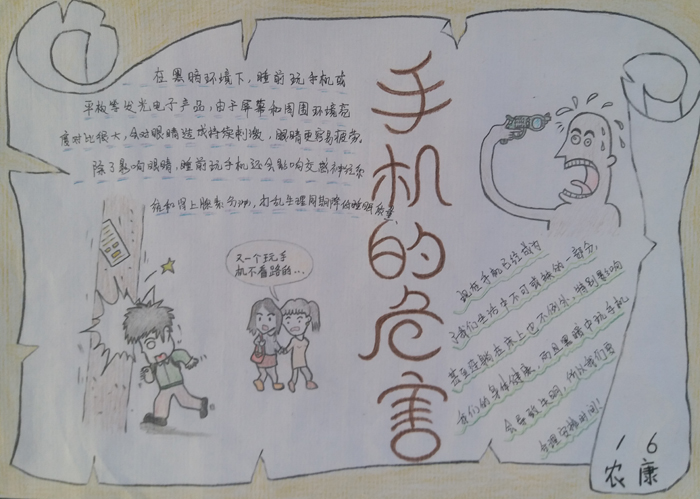 在黑暗环境下，睡前玩手机或
平板等发光电子产品，由于屏幕和周围环境亮
度对比很大，会对眼睛造成持续刺激，眼睛更容易疲劳。
除了影响眼睛，睡前玩手机还会影响交感神经系
统和肾上腺素分泌，打乱生理周期降低睡眠质量
手机的危害
又一个玩手
机不看路的…
现在手机已经成为
了我们生活中不可或缺的一部分，
甚至座躺在床上也不例外，特别影响
我们的身体健康。而且黑暗中玩手机
会导致失明，所以我们要
合理安排时间！
16
农康